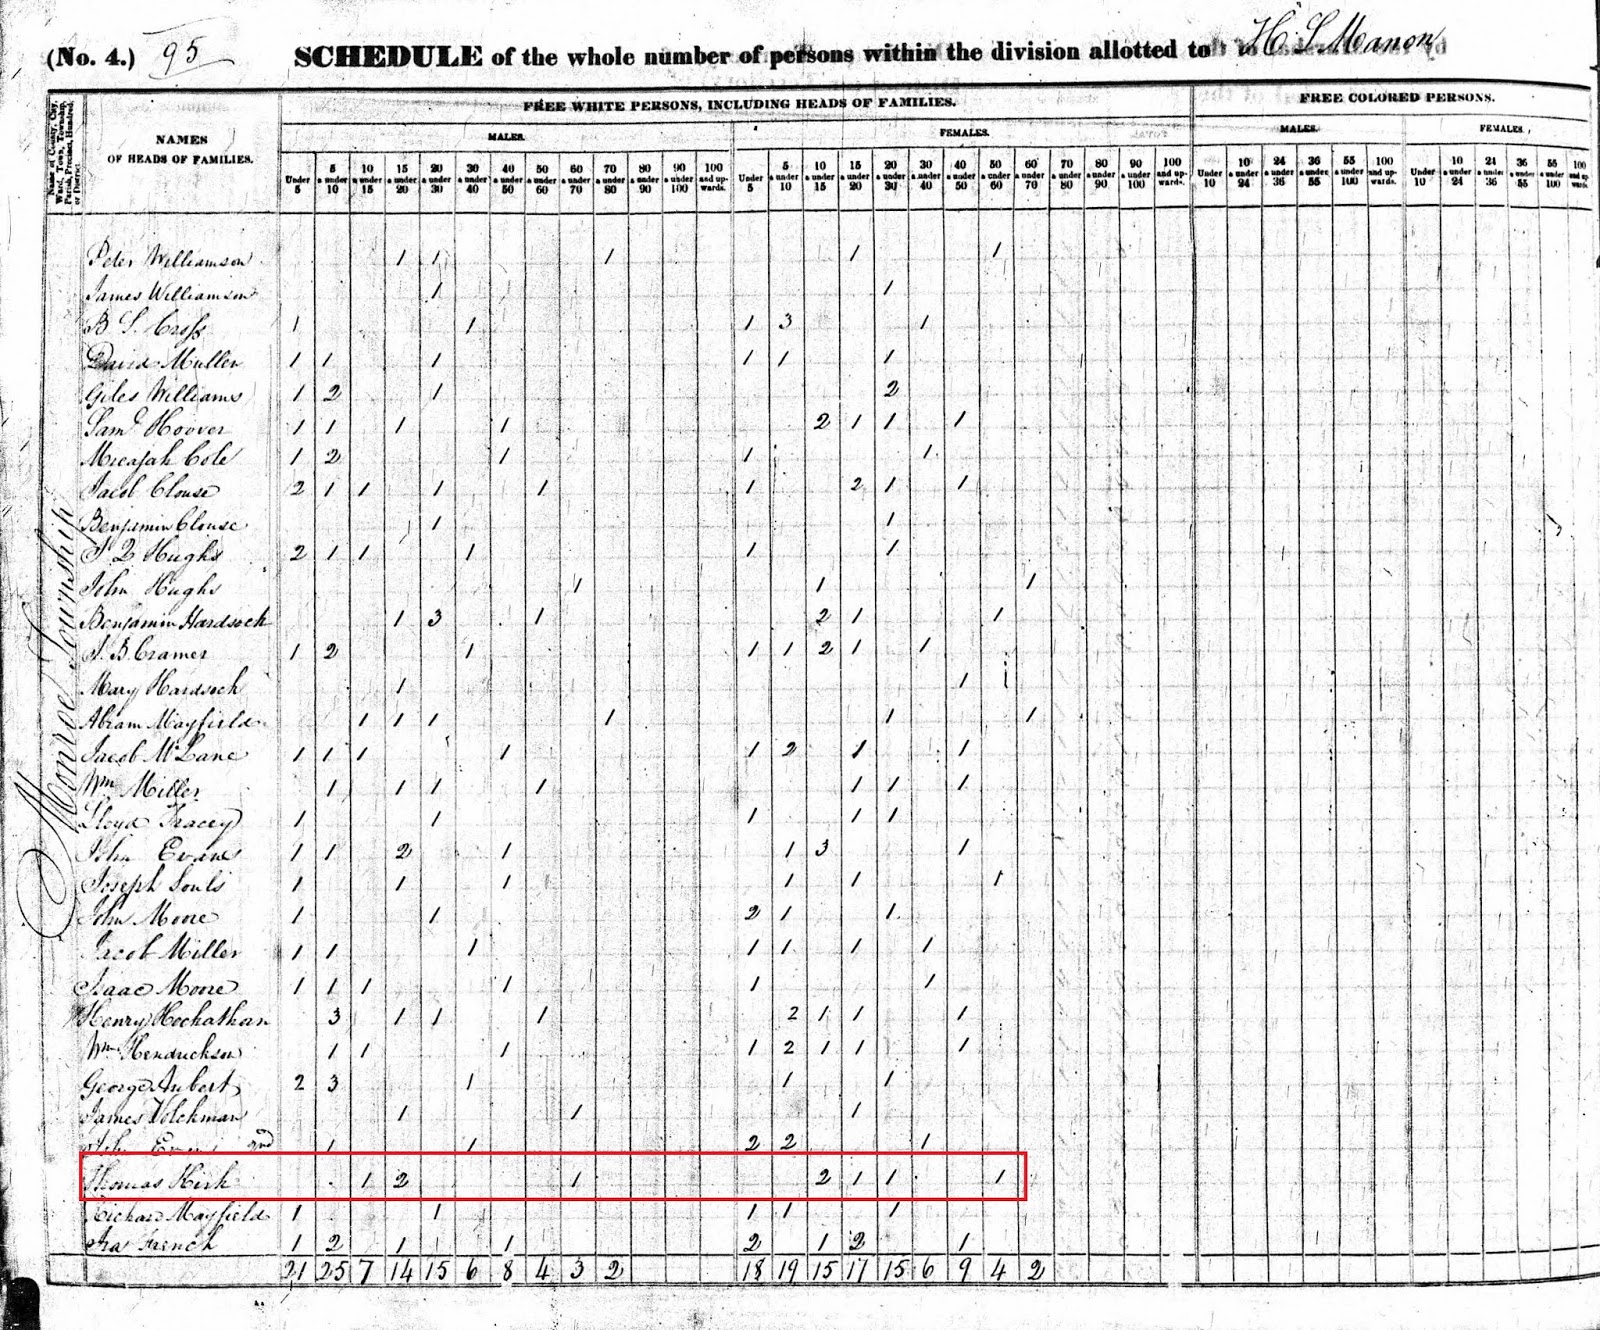 (No. 4.) 95 SCHEDULE of the whole number of persons within the division allotted to H S Manon
Name of County, City, Ward, Town, Township, Parish, Precinct, Hundred, or District.
NAMES OF HEADS OF FAMILIES.
FREE WHITE PERSONS, INCLUDING HEADS OF FAMILIES.
FREE COLORED PERSONS.
MALES. FEMALES. MALES. FEMALES.
Under 5 5 & under 10 10 & under 15 15 & under 20 20 & under 30 30 & under 40 40 & under 50 50 & under 60 60 & under 70 70 & under 80 80 & under 90 90 & under 100 100 and upwards.
Under 5 5 & under 10 10 & under 15 15 & under 20 20 & under 30 30 & under 40 40 & under 50 50 & under 60 60 & under 70 70 & under 80 80 & under 90 90 & under 100 100 and upwards.
Under 10 10 & under 24 24 & under 36 36 & under 55 55 & under 100 100 and upwards.
Under 10 10 & under 24 24 & under 36 36 & under 55 55 & under 100 100 and upwards.
Monroe Township
Peter Williamson 1 1 1 1 1
James Williamson 1 1
B S Cross 1 1 1 3 1
David Muller 1 1 1 1 1 1
Giles Williams 1 2 1 2
Saml Hoover 1 1 1 1 2 1 1 1
Micajah Cole 1 2 1 1 1
Jacob Clouse 2 1 1 1 1 1 2 1 1
Benjamin Clouse 1 1
Hughs 2 1 1 1 1 1
John Hughs 1 1 1
Benjamin Hardsock 1 3 1 2 1 1
J. B. Cramer 1 2 1 1 1 2 1 1
Mary Hardsock 1 1 1
Abram Mayfield 1 1 1 1 1 1
Jacob McLane 1 1 1 1 1 2 1 1
Wm Miller 1 1 1 1 1 1 1
Lloyd Tracey 1 1 1 1 1
John Evans 1 1 2 1 1 3 1
Joseph 1 1 1 1 1 1
John Moore 1 1 2 1 1
Jacob Miller 1 1 1 1 1 1 1
Isaac Moore 1 1 1 1 1 1
Henry Hockathan 3 1 1 1 2 1 1 1
Wm Hendrickson 1 1 1 1 2 1 1 1
George 2 3 1 1 1
James 1 1 1
John Evans 2nd 1 1 2 2 1
Thomas Kirk 1 2 1 2 1 1 1
Richard Mayfield 1 1 1 1 1
Ira French 1 2 1 1 2 1 2 1
21 25 7 14 15 6 8 4 3 2 18 19 15 17 15 6 9 4 2